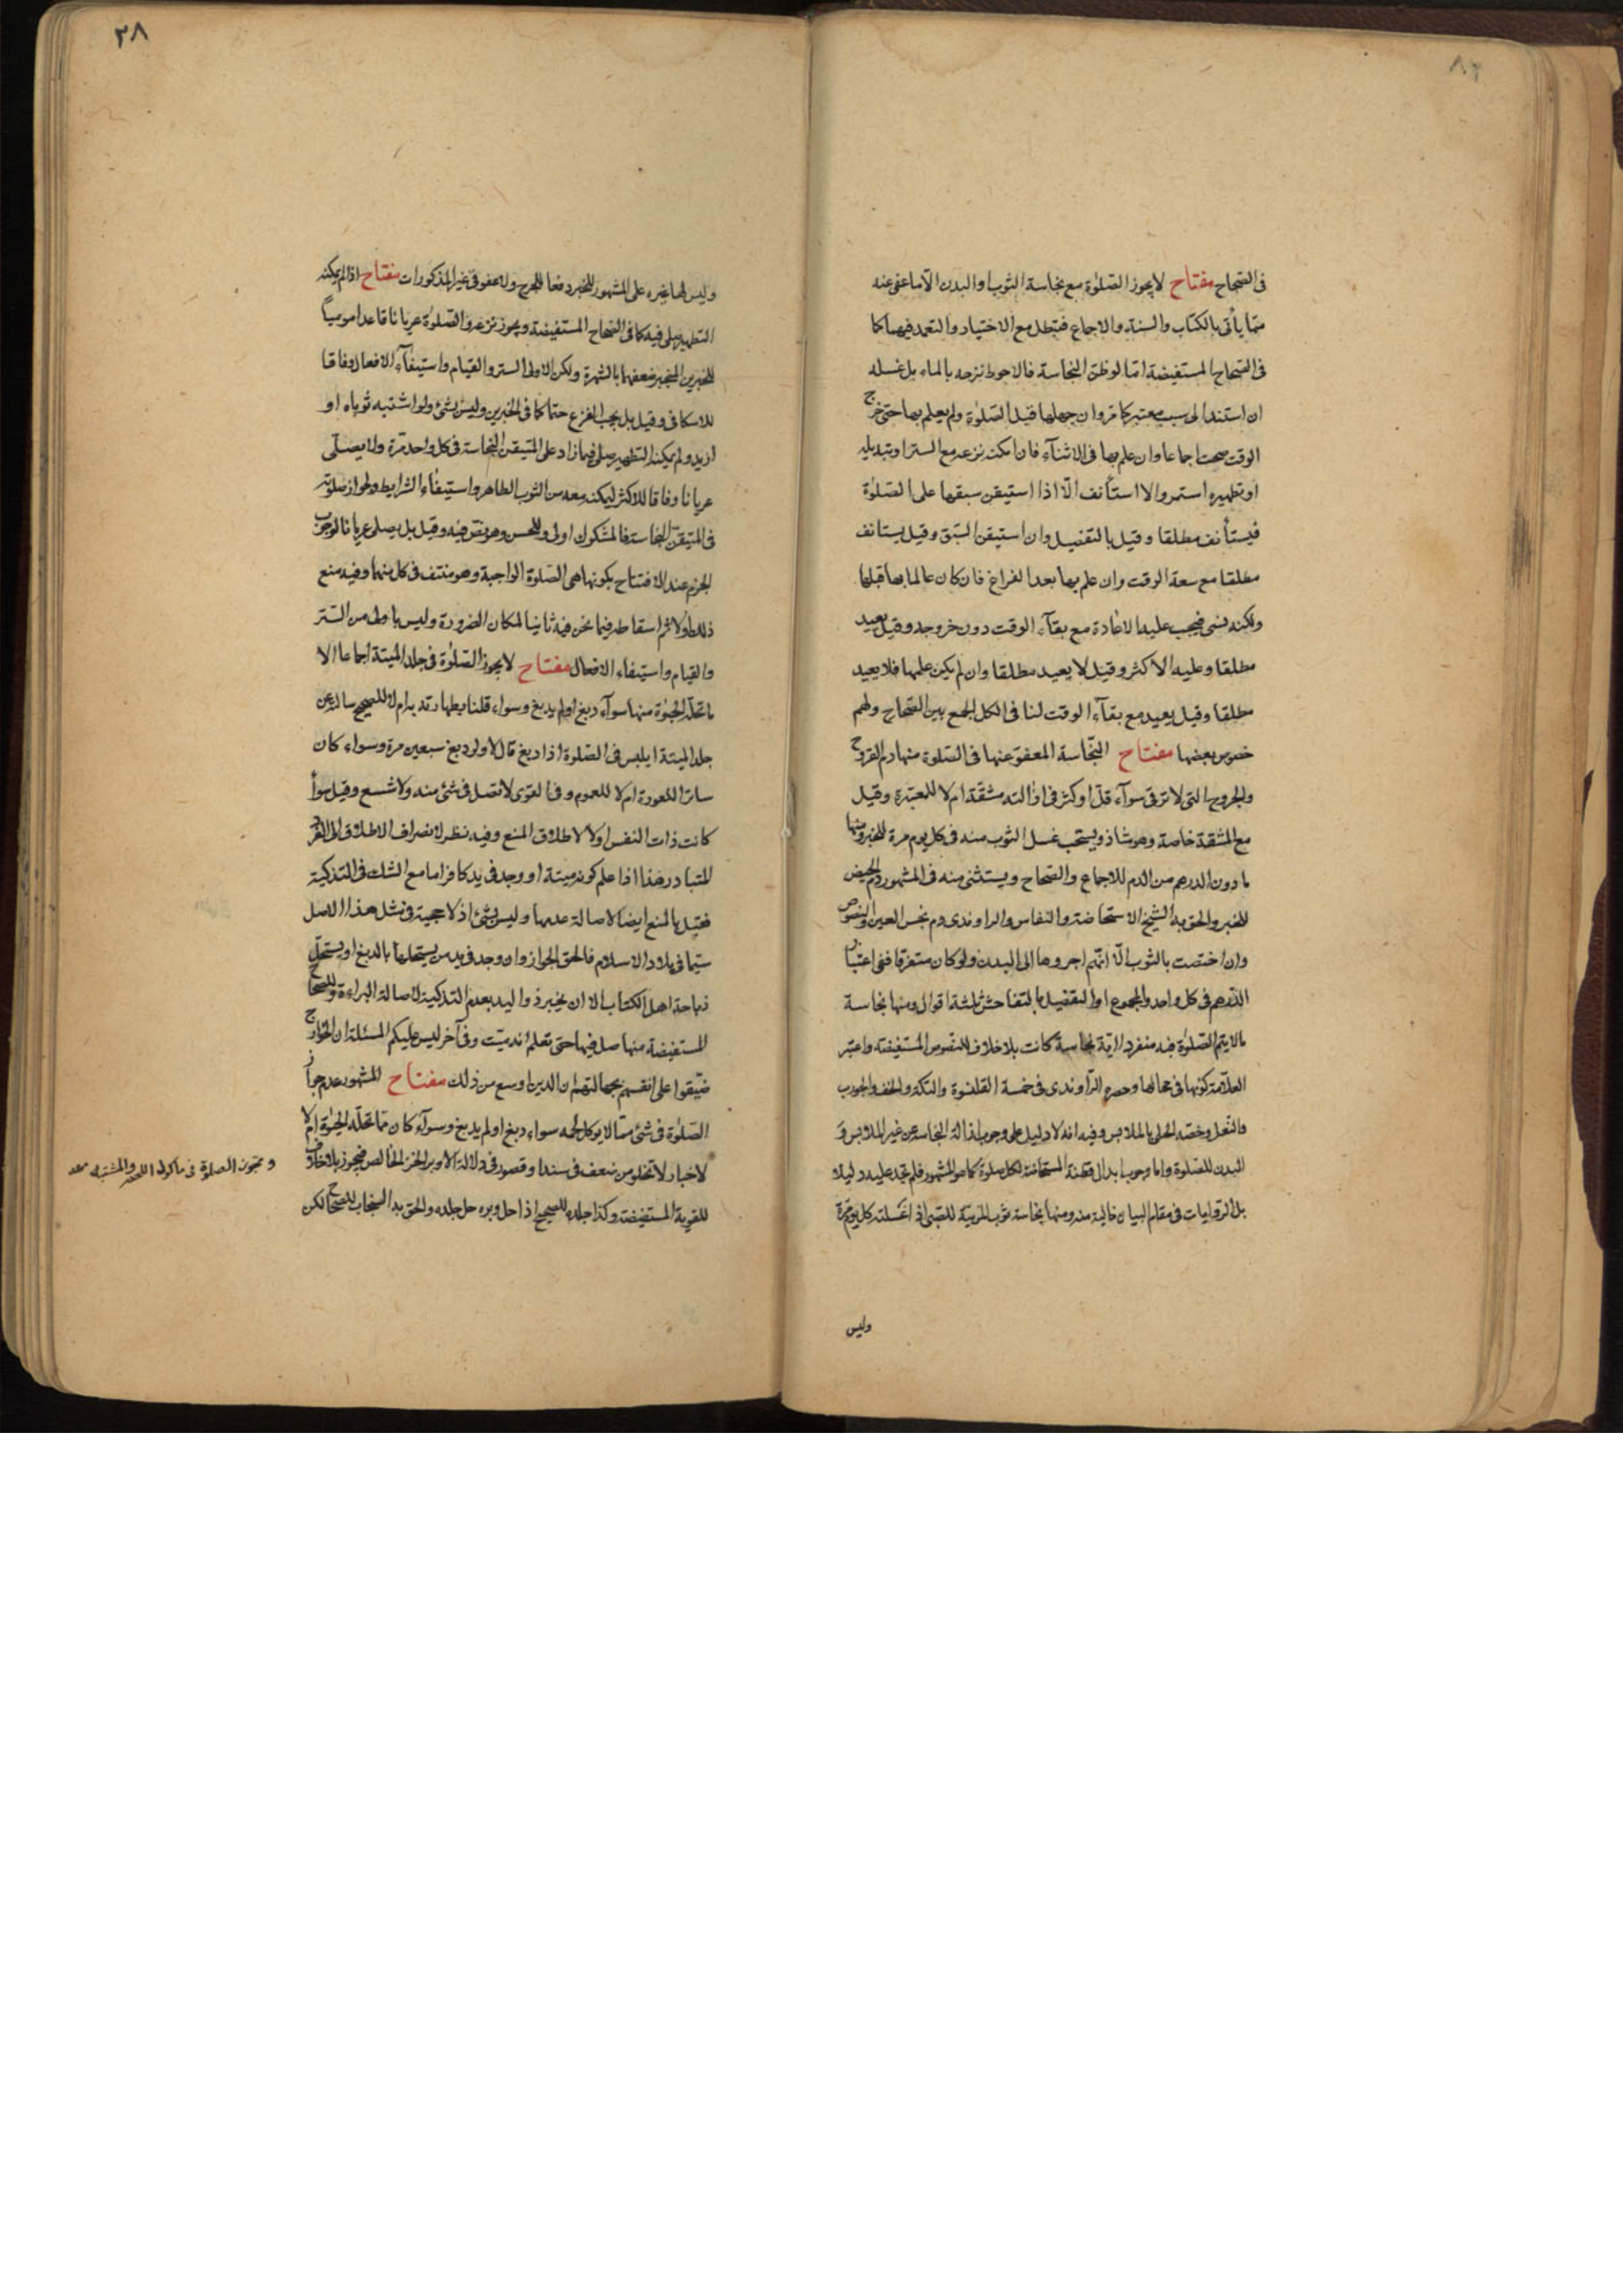 فى الصحاح مفتاح لا يجوز الصلوة مع نجاسة الثوب او البدن الا ما عفى عنه
مما يأتى بالكتاب والسنة والاجماع فتبطل مع الاختيار والتعمد فيهما كما
فى الصحاح المستفيضة اما لو ظن النجاسة فالاحوط نزحه بالماء بل غسله
ان استند الى سبب معتبر كما مر وان جهلها قبل الصلوة ولم يعلم بها حتى خرج
الوقت صحت اجماعا وان علم بها فى الاثناء فان امكنه نزعه مع الستر او تبديله
او تطهيره استمر والا استأنف الا اذا استيقن سبقها على الصلوة
فيستأنف مطلقا وقيل بالتفصيل وان استيقن السبق وقيل يستانف
مطلقا مع سعة الوقت وان علم بها بعد الفراغ فان كان عالما بها قبلها
ولكنه نسى فيجب عليه الاعادة مع بقاء الوقت دون خروجه وقيل يعيد
مطلقا وعليه الاكثر وقيل لا يعيد مطلقا وان لم يكن علمها فلا يعيد
مطلقا وقيل يعيد مع بقاء الوقت لنا فى الكل الجمع بين الصحاح ولهم
خصوص بعضها مفتاح النجاسة المعفو عنها فى الصلوة منها دم القروح
والجروح التى لا ترقى سواء قل او كثر فى ازالته مشقة ام لا للمعتبرة وقيل
مع المشقة خاصة وهو شاذ ويستحب غسل الثوب منه فى كل يوم مرة للخبر ومنها
ما دون الدرهم من الدم للاجماع والصحاح ويستثنى منه فى المشهور دم الحيض
للخبر والحق به الشيخ الاستحاضة والنفاس والراوندى دم نجس العين والنصوص
وان اختصت بالثوب الا انهم اجروها الى البدن ولو كان متفرقا ففى اعتبار
الدرهم فى كل واحد والمجموع او التفصيل بالتفاحش ثلثة اقوال ومنها نجاسة
ما لا يتم الصلوة فيه منفردا اية نجاسة كانت بلا خلاف للنصوص المستفيضة واعتبر
العلامة كونها فى محالها وحصره الراوندى فى خمسة القلنسوة والتكة والخف والجورب
والنعل وخصه الحلى بالملابس وفيه انه لا دليل على وجوب ازالة النجاسة عن غير الملابس و
البدن للصلوة واما وجوب ابدال قطنة المستحاضة لكل صلوة كما هو المشهور فلم نجد عليه دليلا
بل الروايات فى مقام البيان خالية منه ومنها نجاسة ثوب المربية للصبى اذا غسلته كل يوم مرة
وليس
٣٨
وليس لها غيره على المشهور للخبر دفعا للحرج ولا عفو فى غير المذكورات مفتاح اذا لم يمكنه
التطهير صلى فيه كما فى الصحاح المستفيضة ويجوز نزعه والصلوة عريانا قاعدا موميا
للخبرين المنجبر ضعفهما بالشهرة ولكن الاولى الستر والقيام واستيفاء الافعال وفاقا
للاسكافى وقيل بل يجب النزع حتما كما فى الخبرين وليس بشئ ولو اشتبه ثوباه او
ازيد ولم يمكنه التطهير صلى فيما زاد على المتيقن النجاسة فى كل واحد مرة ولا يصلى
عريانا وفاقا للاكثر ليمكنه معه من الثوب الطاهر واستيفاء الشرايط ولجواز صلوته
فى المتيقن النجاسة فالمشكوك اولى وللحسن وهو نص فيه وقيل بل يصلى عريانا لوجوب
الجزم عند الافتتاح بكونها هى الصلوة الواجبة وهو منتف فى كل منهما وفيه منع
ذلك اولا ثم اسقاطه فيما نحن فيه ثانيا لمكان الضرورة وليس باولى من الستر
والقيام واستيفاء الافعال مفتاح لا يجوز الصلوة فى جلد الميتة اجماعا الا
ما تحله الحيوة منها سواء دبغ او لم يدبغ وسواء قلنا بطهارته به ام لا للصحيح سالته عن
جلد الميتة ايلبس فى الصلوة اذا دبغ قال لا ولو دبغ سبعين مرة وسواء كان
ساترا للعورة ام لا للعموم وفى القوى لا تصل فى شئ منه ولا شسع وقيل سواء
كانت ذات النفس اولا لاطلاق المنع وفيه نظر لانصراف الاطلاق الى الفرد
المتبادر هذا اذا علم كونه ميتة او وجد فى يد كافر اما مع الشك فى التذكية
فقيل بالمنع ايضا لاصالة عدمها وليس بشئ اذ لا حجية فى مثل هذا الاصل
سيما فى بلاد الاسلام فالحق الجواز وان وجد فى يد من يستحلها بالدبغ او يستحل
ذباحة اهل الكتاب الا ان يخبر ذو اليد بعدم التذكية لاصالة البراءة وللصحاح
المستفيضة منها صل فيها حتى تعلم انه ميت وفى آخر ليس عليكم المسئلة ان الخوارج
ضيقوا على انفسهم بجهالتهم ان الدين اوسع من ذلك مفتاح المشهور عدم جواز
الصلوة فى شئ مما لا يوكل لحمه سواء دبغ او لم يدبغ وسواء كان مما تحله الحيوة ام لا
لاخبار لا تخلو من ضعف فى سند او قصور فى دلالة الا وبر الخز الخالص فيجوز بلا خلاف
للقوية المستفيضة وكذا جلده للصحيح اذا حل وبره حل جلده والحق به السنجاب للصحاح لكن
و تجوز الصلوة فى ماكول اللحم والمشتبه